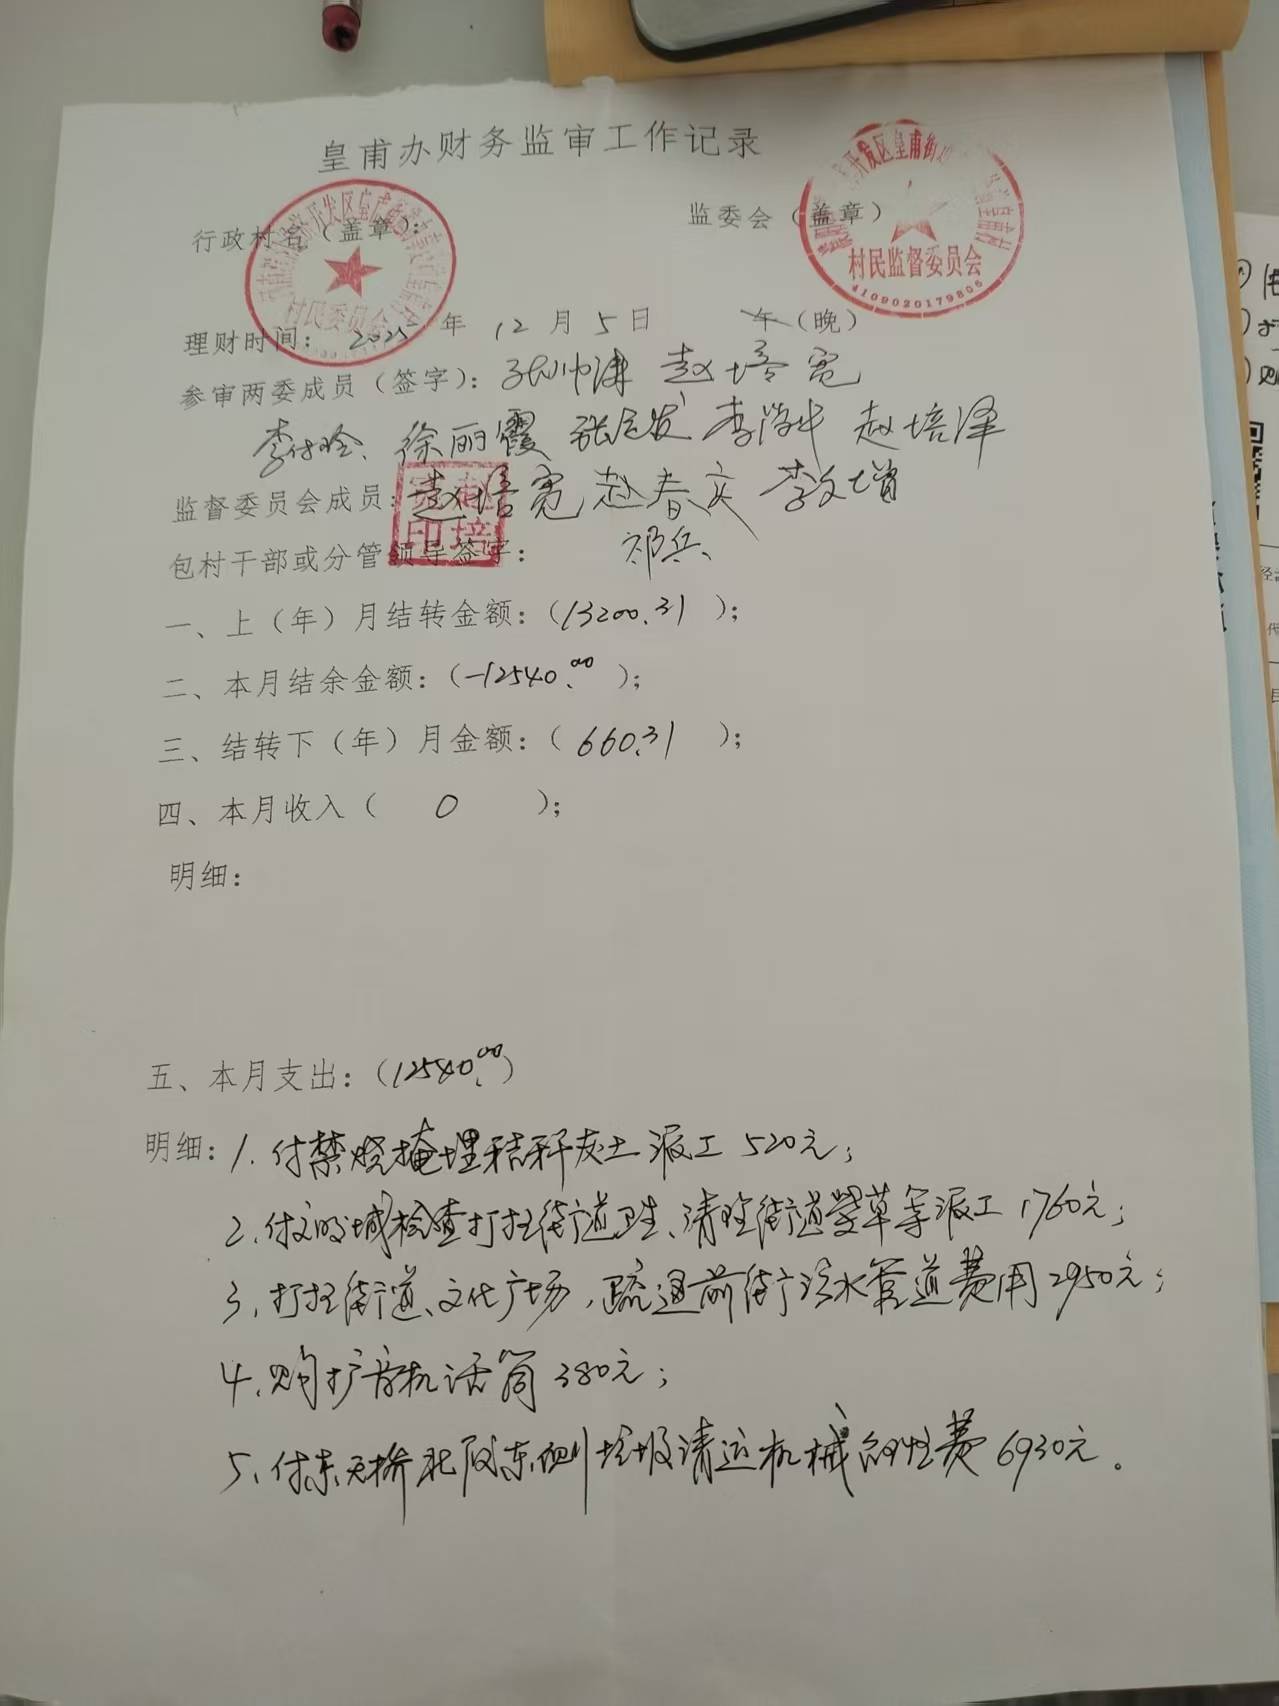 皇甫办财务监审工作记录
行政村名（盖章）：
监委会（盖章）
村民委员会
村民监督委员会
4109020179805
理财时间： 2025 年 12 月 5 日 午（晚）
参审两委成员（签字）： 赵培宽
徐丽霞 赵培泽
监督委员会成员：赵培宽 赵春 李文增
印培
包村干部或分管领导签字： 祁兵
一、上（年）月结转金额：（13200.31 ）；
二、本月结余金额：（-12540.00 ）；
三、结转下（年）月金额：（ 660.31 ）；
四、本月收入（ 0 ）；
明细：
五、本月支出：（12540.00）
明细：1.付禁烧掩埋秸秆灰土派工 520元；
2.付文明城检查打扫街道卫生、清除街道杂草等派工 1760元；
3.打扫街道、文化广场，疏通前街污水管道费用2950元；
4.购扩音机话筒380元；
5.付东天桥北段东侧垃圾清运机械费 6930元。